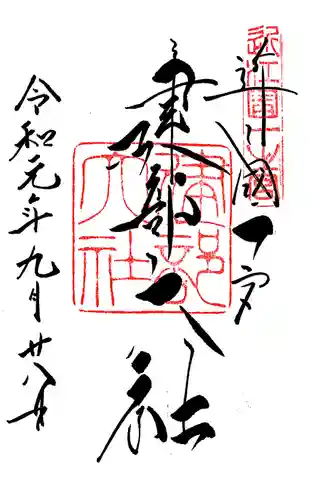 近江國一宮
近江國一宮
建部大社
建部大社
令和元年九月廿八日